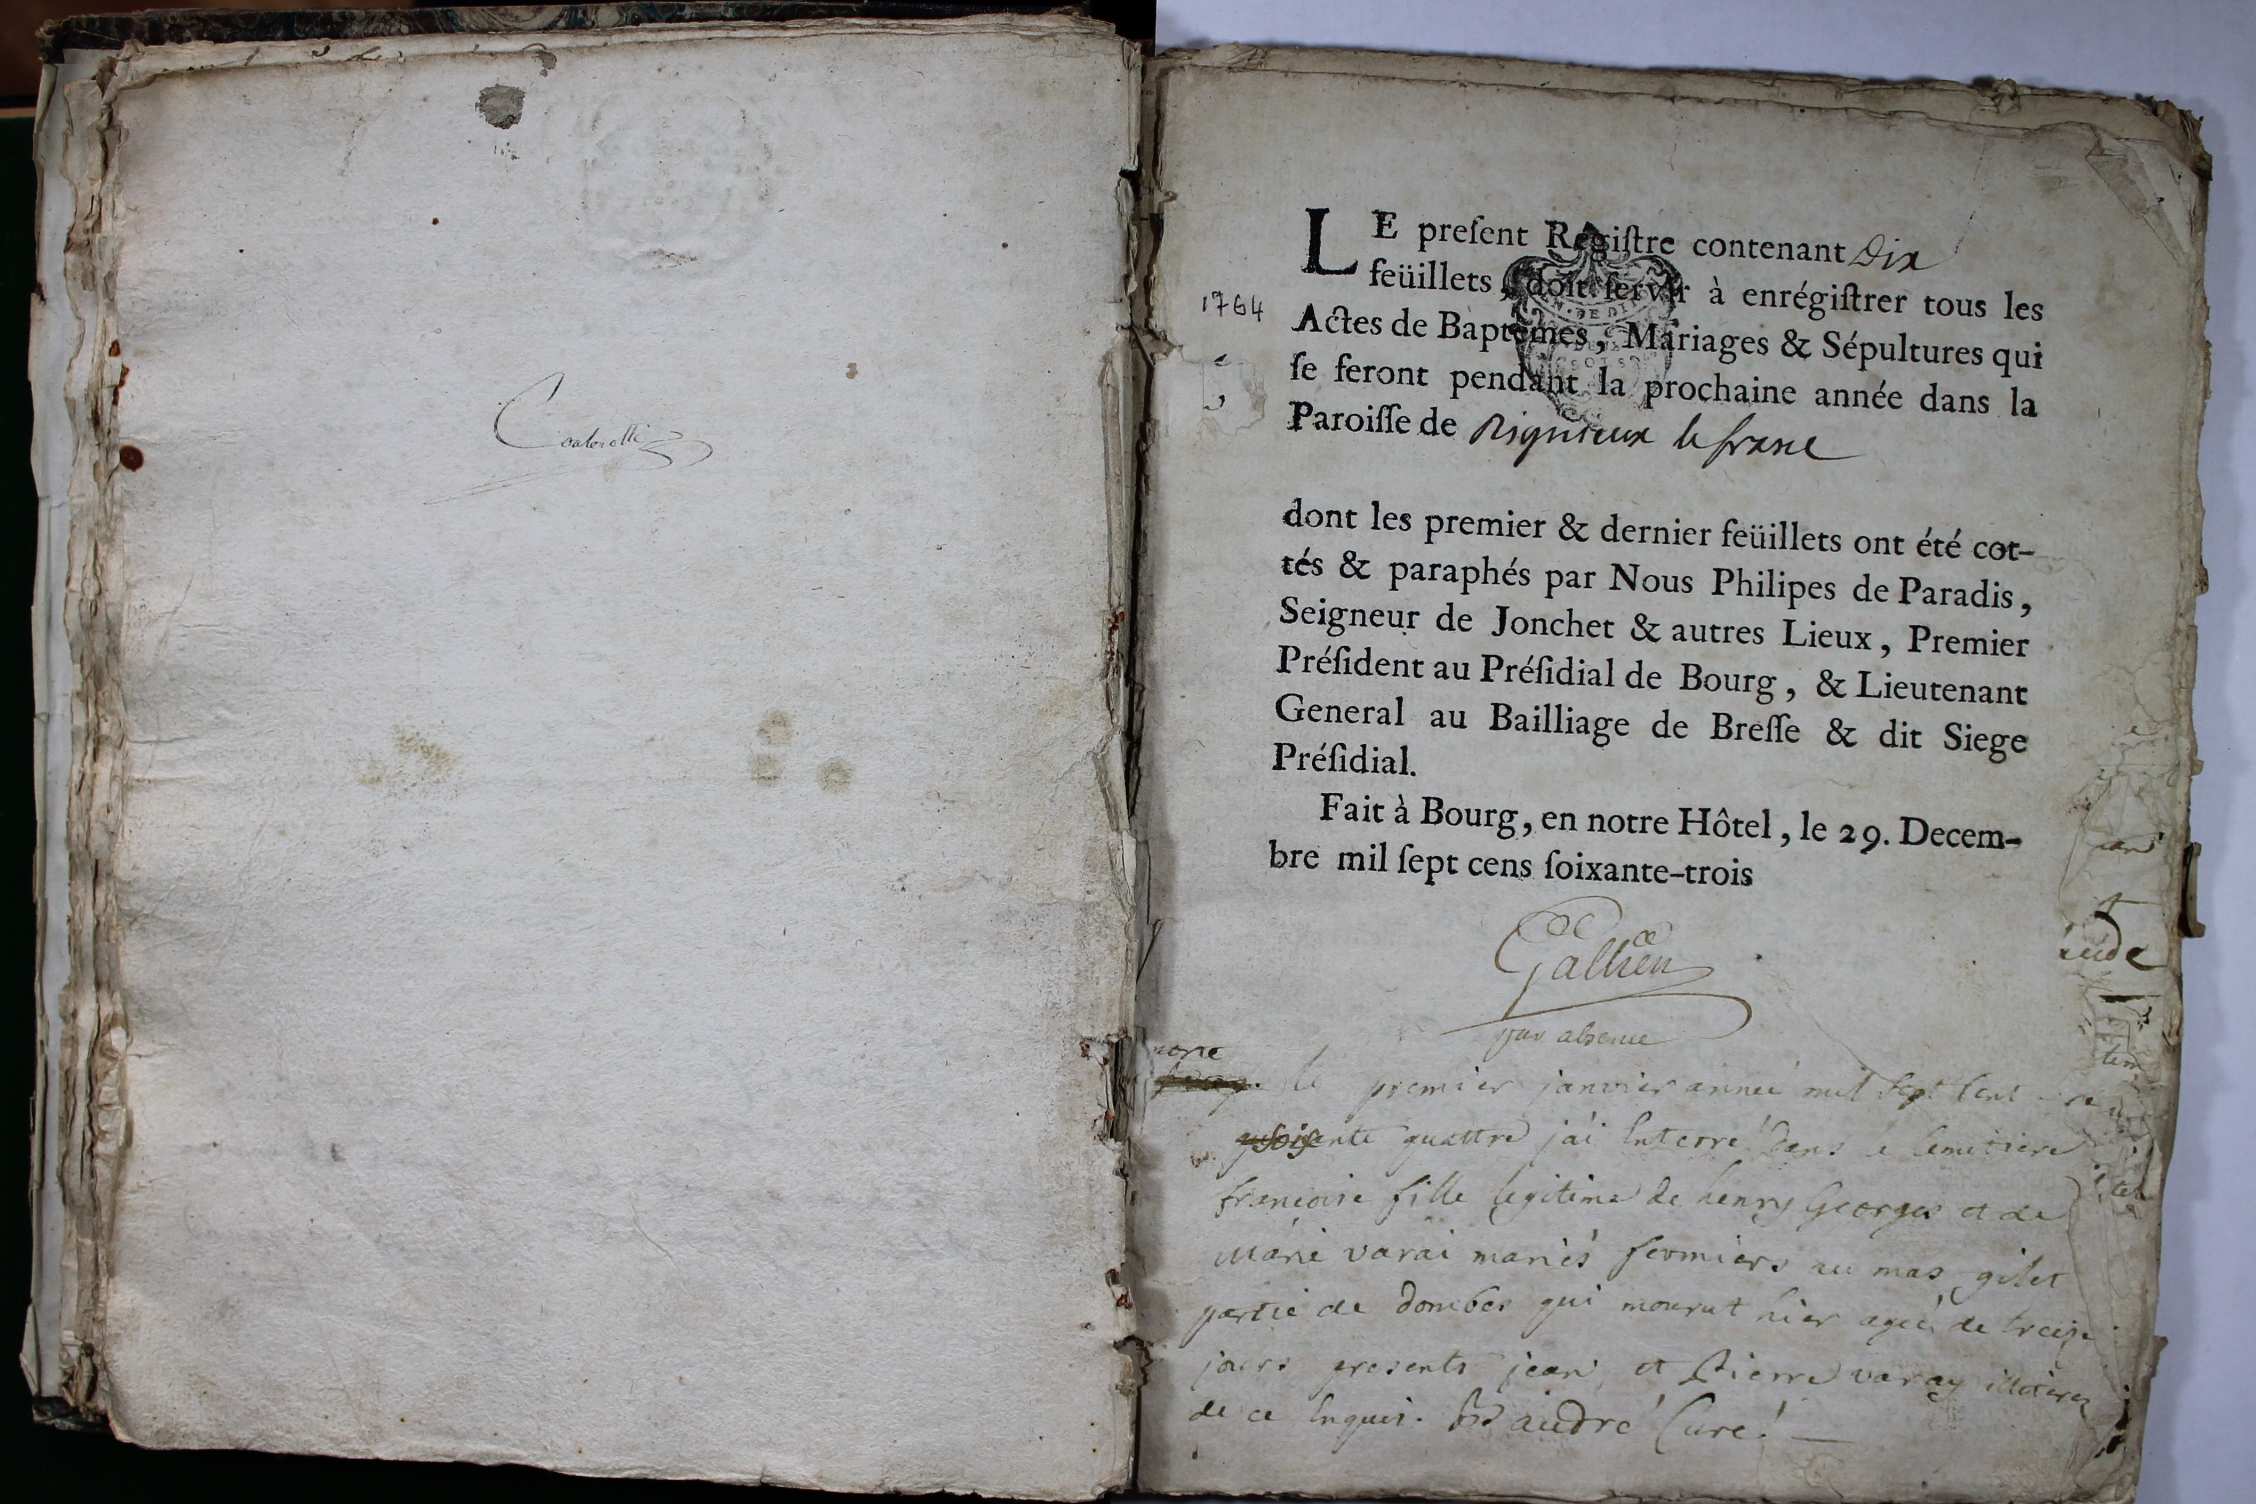 LE preſent Regiſtre contenant Dix
feüillets, doit ſervir à enrégiſtrer tous les
1764
Actes de Baptêmes, Mariages & Sépultures qui
ſe feront pendant la prochaine année dans la
Paroiſſe de Rignieux le franc
dont les premier & dernier feüillets ont été cot-
tés & paraphés par Nous Philipes de Paradis,
Seigneur de Jonchet & autres Lieux, Premier
Préſident au Préſidial de Bourg, & Lieutenant
General au Bailliage de Breſſe & dit Siege
Préſidial.
Fait à Bourg, en notre Hôtel, le 29. Decem-
bre mil ſept cens ſoixante-trois
Gallien
par absence
le premier janvier année mil sept cent
soisente quattre j'ai enterré dans le cemetiere
francoise fille legitime de henry Georges et de
Marie varai mariés fermiers au mas gilet
partie de dombes qui mourut hier agée de treize
jours presents jean et Pierre varay illiterez
de ce enquis. andré Curé